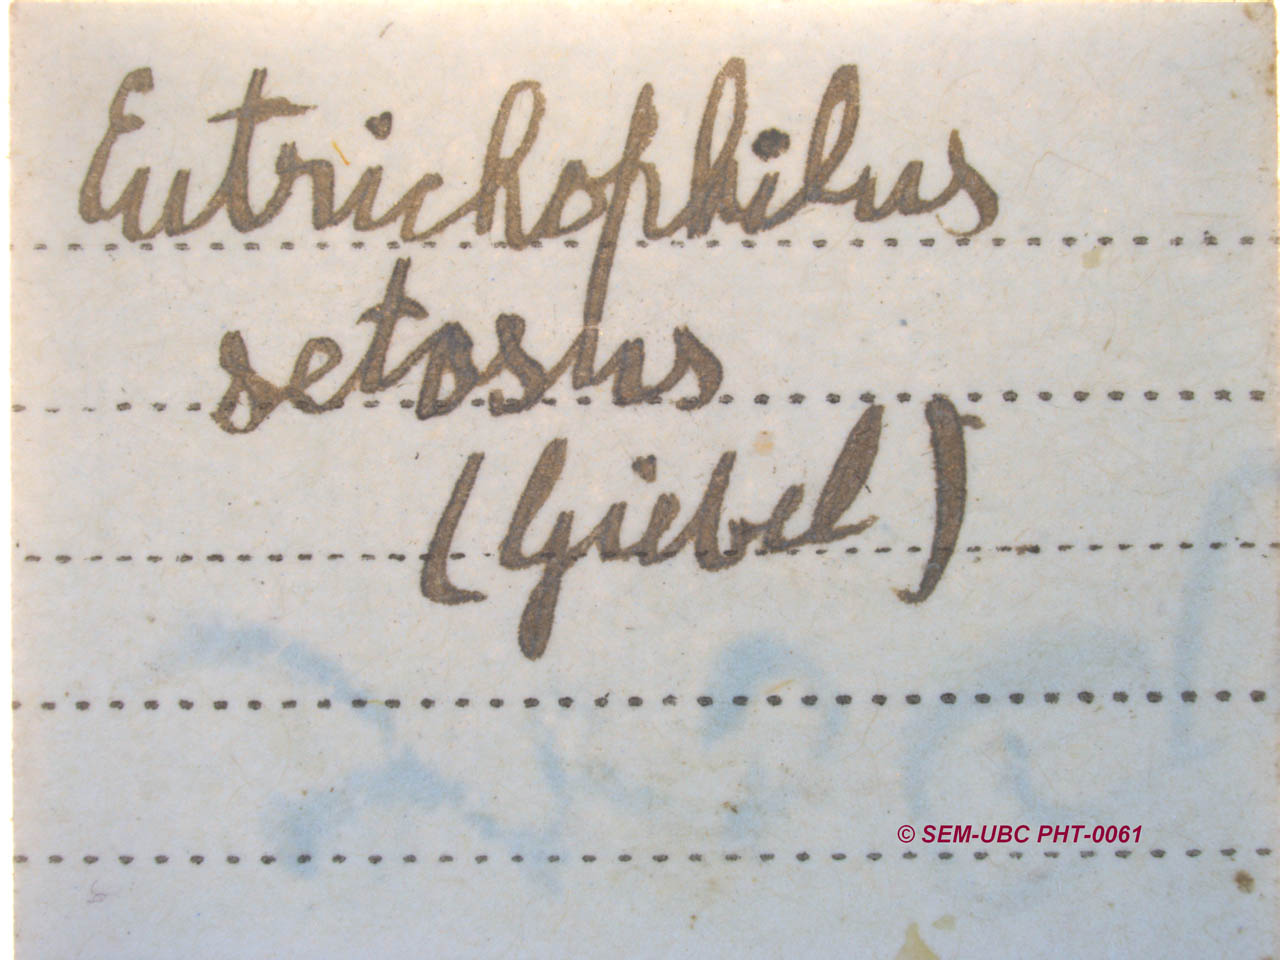 Eutrichophilus
setosus
(Giebel)
© SEM-UBC PHT-0061